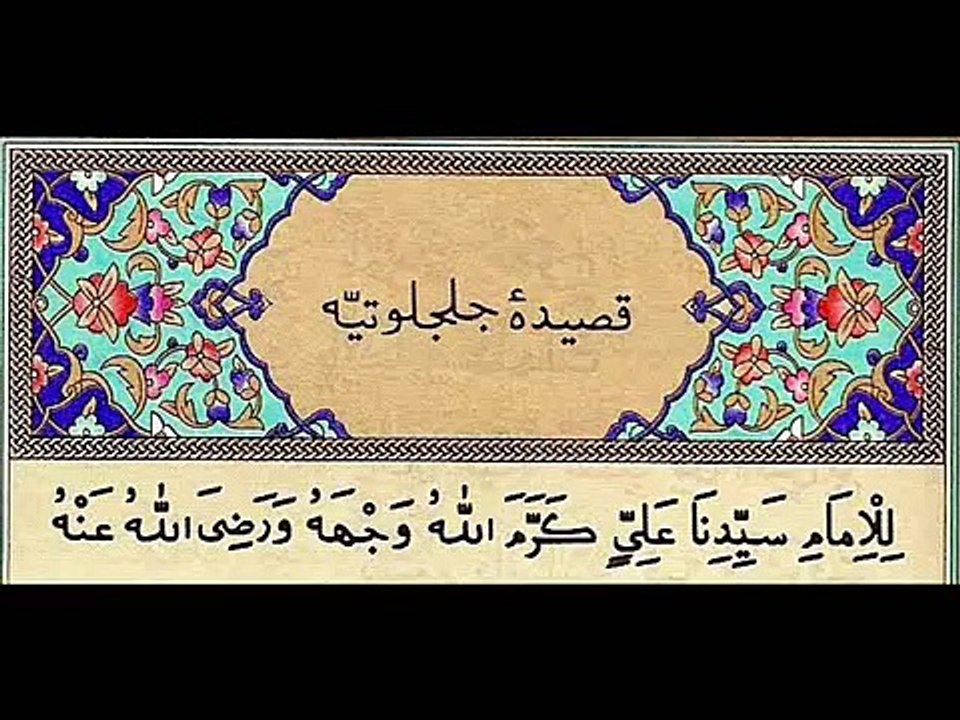 قصیدۀ جلجلوتیّه
لِلْاِمَامِ سَيِّدِنَا عَلِيٍّ كَرَّمَ اللّٰهُ وَجْهَهُ وَرَضِىَ اللّٰهُ عَنْهُ